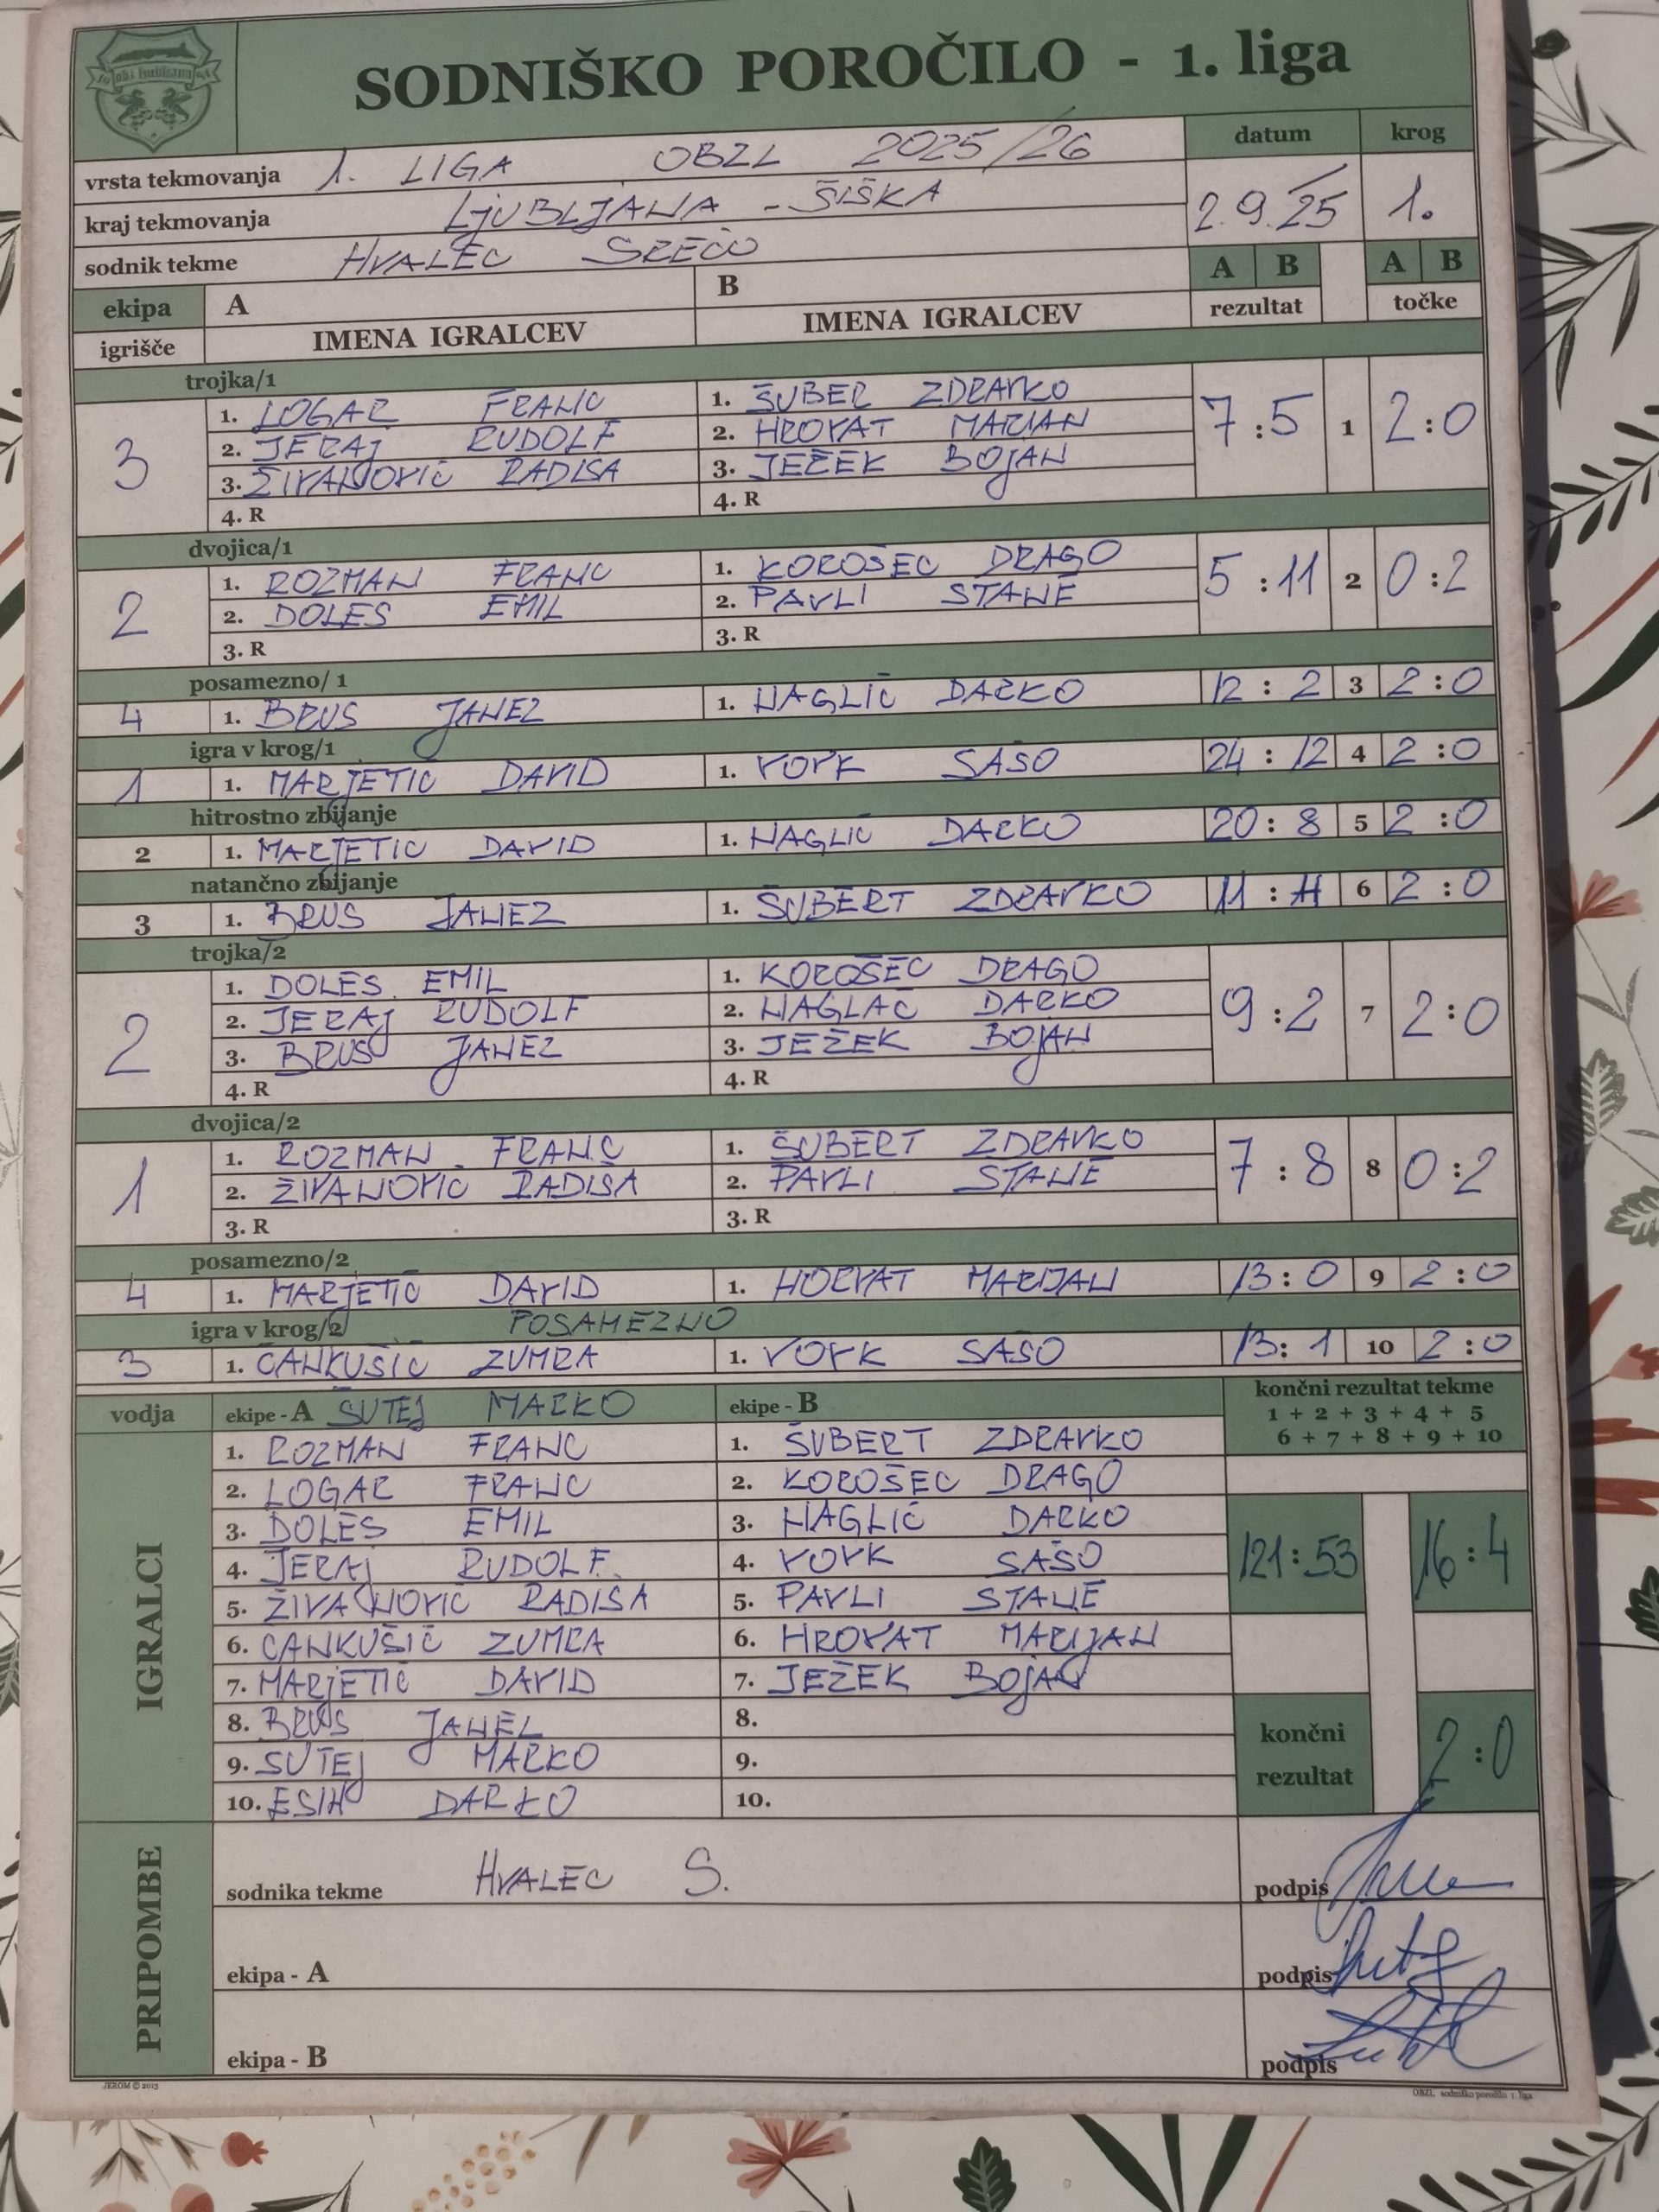 SODNIŠKO POROČILO - 1. liga
vrsta tekmovanja 1. LIGA OBZL 2025/26 datum krog
kraj tekmovanja LJUBLJANA - ŠIŠKA 2.9.25 1.
sodnik tekme HVALEC SREČO A B A B
ekipa A B rezultat točke
igrišče IMENA IGRALCEV IMENA IGRALCEV
trojka/1
3 1. LOGAR FRANC 1. ŠUBER ZDRAVKO 7:5 1 2:0
2. JERAJ RUDOLF 2. HROVAT MARIAN
3. ŽIVANOVIĆ RADISA 3. JEŽEK BOJAN
4. R 4. R
dvojica/1
2 1. ROZMAN FRANC 1. KOROŠEC DRAGO 5:11 2 0:2
2. DOLES EMIL 2. PAVLI STANE
3. R 3. R
posamezno/ 1
4 1. BRUS JANEZ 1. NAGLIČ DARKO 12:2 3 2:0
igra v krog/1
1 1. MARJETIČ DAVID 1. VOVK SAŠO 24:12 4 2:0
hitrostno zbijanje
2 1. MARJETIČ DAVID 1. NAGLIČ DARKO 20:8 5 2:0
natančno zbijanje
3 1. BRUS JANEZ 1. ŠUBERT ZDRAVKO 11: 6 2:0
trojka/2
2 1. DOLES EMIL 1. KOROŠEC DRAGO 9:2 7 2:0
2. JERAJ RUDOLF 2. NAGLAČ DARKO
3. BRUS JANEZ 3. JEŽEK BOJAN
4. R 4. R
dvojica/2
1 1. ROZMAN FRANC 1. ŠUBERT ZDRAVKO 7:8 8 0:2
2. ŽIVANOVIC RADISA 2. PAVLI STANE
3. R 3. R
posamezno/2
4 1. MARJETIČ DAVID 1. HORVAT MARIJAN 13:0 9 2:0
igra v krog/2 POSAMEZNO
3 1. CANKUŠIĆ ZUMRA 1. VOVK SAŠO 13:1 10 2:0
vodja ekipe - A ŠUTEJ MARKO ekipe - B končni rezultat tekme
1 + 2 + 3 + 4 + 5
6 + 7 + 8 + 9 + 10
IGRALCI
1. ROZMAN FRANC 1. ŠUBERT ZDRAVKO
2. LOGAR FRANC 2. KOROŠEC DRAGO
3. DOLES EMIL 3. NAGLIČ DARKO 121:53 16:4
4. JERAJ RUDOLF 4. VOVK SAŠO
5. ŽIVANOVIĆ RADISA 5. PAVLI STANE
6. CANKUŠIČ ZUMRA 6. HROVAT MARIJAN
7. MARJETIČ DAVID 7. JEŽEK BOJAN
8. BRUS JANEZ 8. končni rezultat 2:0
9. SUTEJ MARKO 9.
10. ESIH DARKO 10.
PRIPOMBE
sodnika tekme HVALEC S. podpis
ekipa - A podpis
ekipa - B podpis
JEROM © 2013 OBZL sodniško poročilo 1. liga